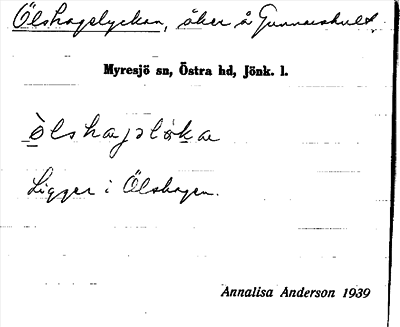 Ölshagslyckan, åker å Gunnarshult.
Myresjö sn, Östra hd, Jönk. l.
Ligger i Ölshagen.
Annalisa Anderson 1939